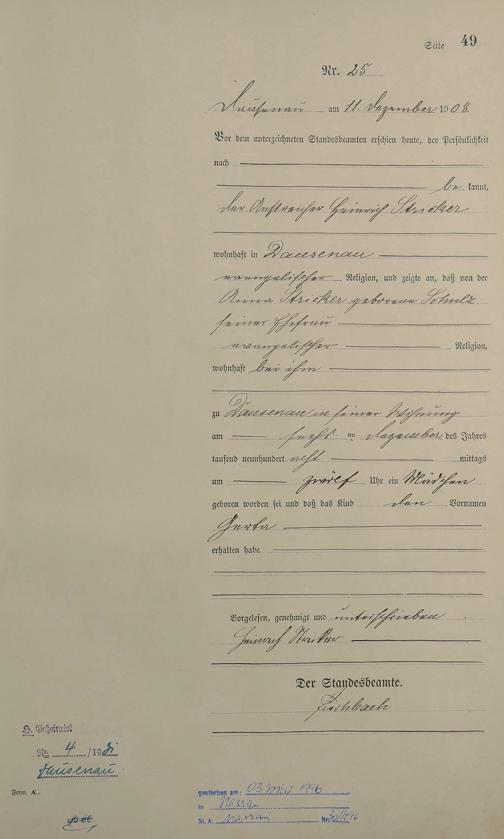 Seite 49
Nr. 25
Dausenau am 11. Dezember 1908.
Vor dem unterzeichneten Standesbeamten erschien heute, der Persönlichkeit
nach
be kannt,
der Anstreicher Heinrich Stricker
wohnhaft in Dausenau
evangelischer Religion, und zeigte an, daß von der
Anna Stricker geborene Schulz
seiner Ehefrau
evangelischer Religion,
wohnhaft bei ihm
zu Dausenau in seiner Wohnung
am sechs ten Dezember des Jahres
tausend neunhundert acht mittags
um zwölf Uhr ein Mädchen
geboren worden sei und daß das Kind den Vornamen
Gerta
erhalten habe.
Vorgelesen, genehmigt und unterschrieben
Heinrich Stricker
Der Standesbeamte.
Fischbach
Geheiratet
No. 4 /19
Dausenau
Form. A.
gestorben am: 03. März 1996
in Nassau
St. A. Nassau Nr.